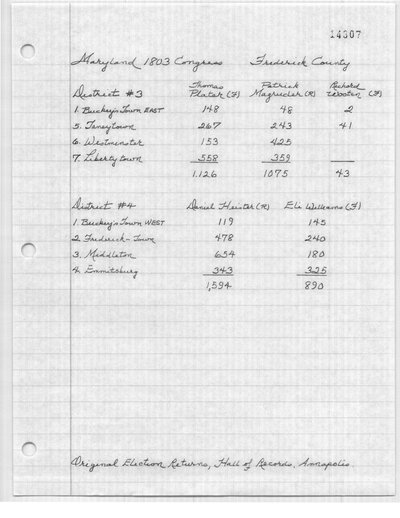 14307
Maryland 1803 Congress Frederick County
District #3 Thomas Plater (F) Patrick Magruder (R) Richard (F)
1. Buckeys Town EAST 148 48 2
5. Taneytown 267 243 41
6. Westminster 153 425
7. Liberty town 558 359
1,126 1075 43
District #4 Daniel Heister (R) Eli Williams (F)
1. Buckeys Town WEST 119 145
2. Frederick-Town 478 240
3. Middleton 654 180
4. Emmitsburg 343 325
1,594 890
Original Election Returns, Hall of Records, Annapolis.